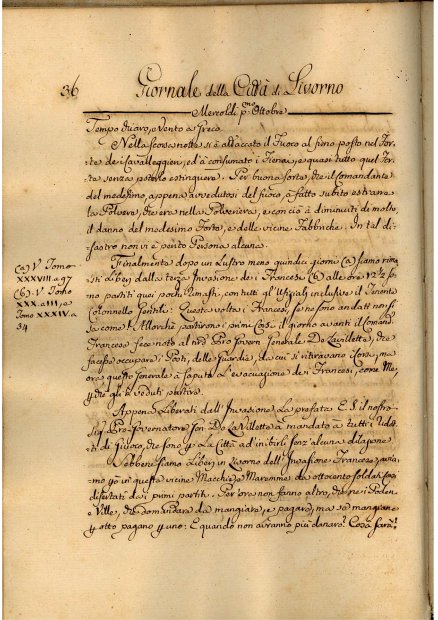 36 Giornale della Città di Livorno
Mercoldì p.mo Ottobre
Tempo chiaro, e Vento a Greco.
Nella scorsa notte si è attaccato il Fuoco al fieno posto nel For-
te de i Cavalleggieri, ed à consumati i Fieni, e quasi tutto quel For-
te senza poterlo estinguere. Per buona sorte, che il Comandante
del medesimo appena avvedutosi del fuoco, à fatto subito estrarre
la Polvere, che era nella Polveriera, e con ciò à diminuiti di molto,
il danno del medesimo Forte, e delle vicine Fabbriche. In tal di-
sastro non vi è perito Persona alcuna.
Finalmente dopo un Lustro meno quindici giorni (a) siamo rima-
sti Liberi dalla terza Invasione de i Francesi (b) alle ore 12½ so-
no partiti quei pochi rimasti, con tutti gl'Ufiziali inclusive il Tenente
Colonnello Gentili: Questa volta i Francesi se ne sono andati
sa come: Allorchè partirono i primi Corsi il giorno avanti il Coman.
Francese fece noto al nro Pro Govern Generale De Lavillette, che
facesse occupare i Posti, delle Guardie, da cui si ritiravano Loro, ma
ora questo Generale à saputa l'evacuazione de i Francesi, come
gli à veduti partire.
Appena Liberati dall'Invasione La prefata E. S. il nostro
Pro-Governatore De La Villette à mandato a tutti i
di Giuoco, che sono p La Città ad inibirli senz'alcuna dilazione
Sebbene siamo Liberi in Livorno dell'Invasione Francese,
mo in queste vicine Macchie, e Maremme da ottocento soldati
disertati da i primi partiti. Per ora non fanno altro, che
e Ville, che domandare da mangiare, e pagare, ma se mangiano
p otto pagano p uno: E quando non avranno più danaro? Cosa farà!
(a) V. Tomo
XXXVIII a 97
(b) V. Tomo
XXXAIII, e
Tomo XXXIV. a
34